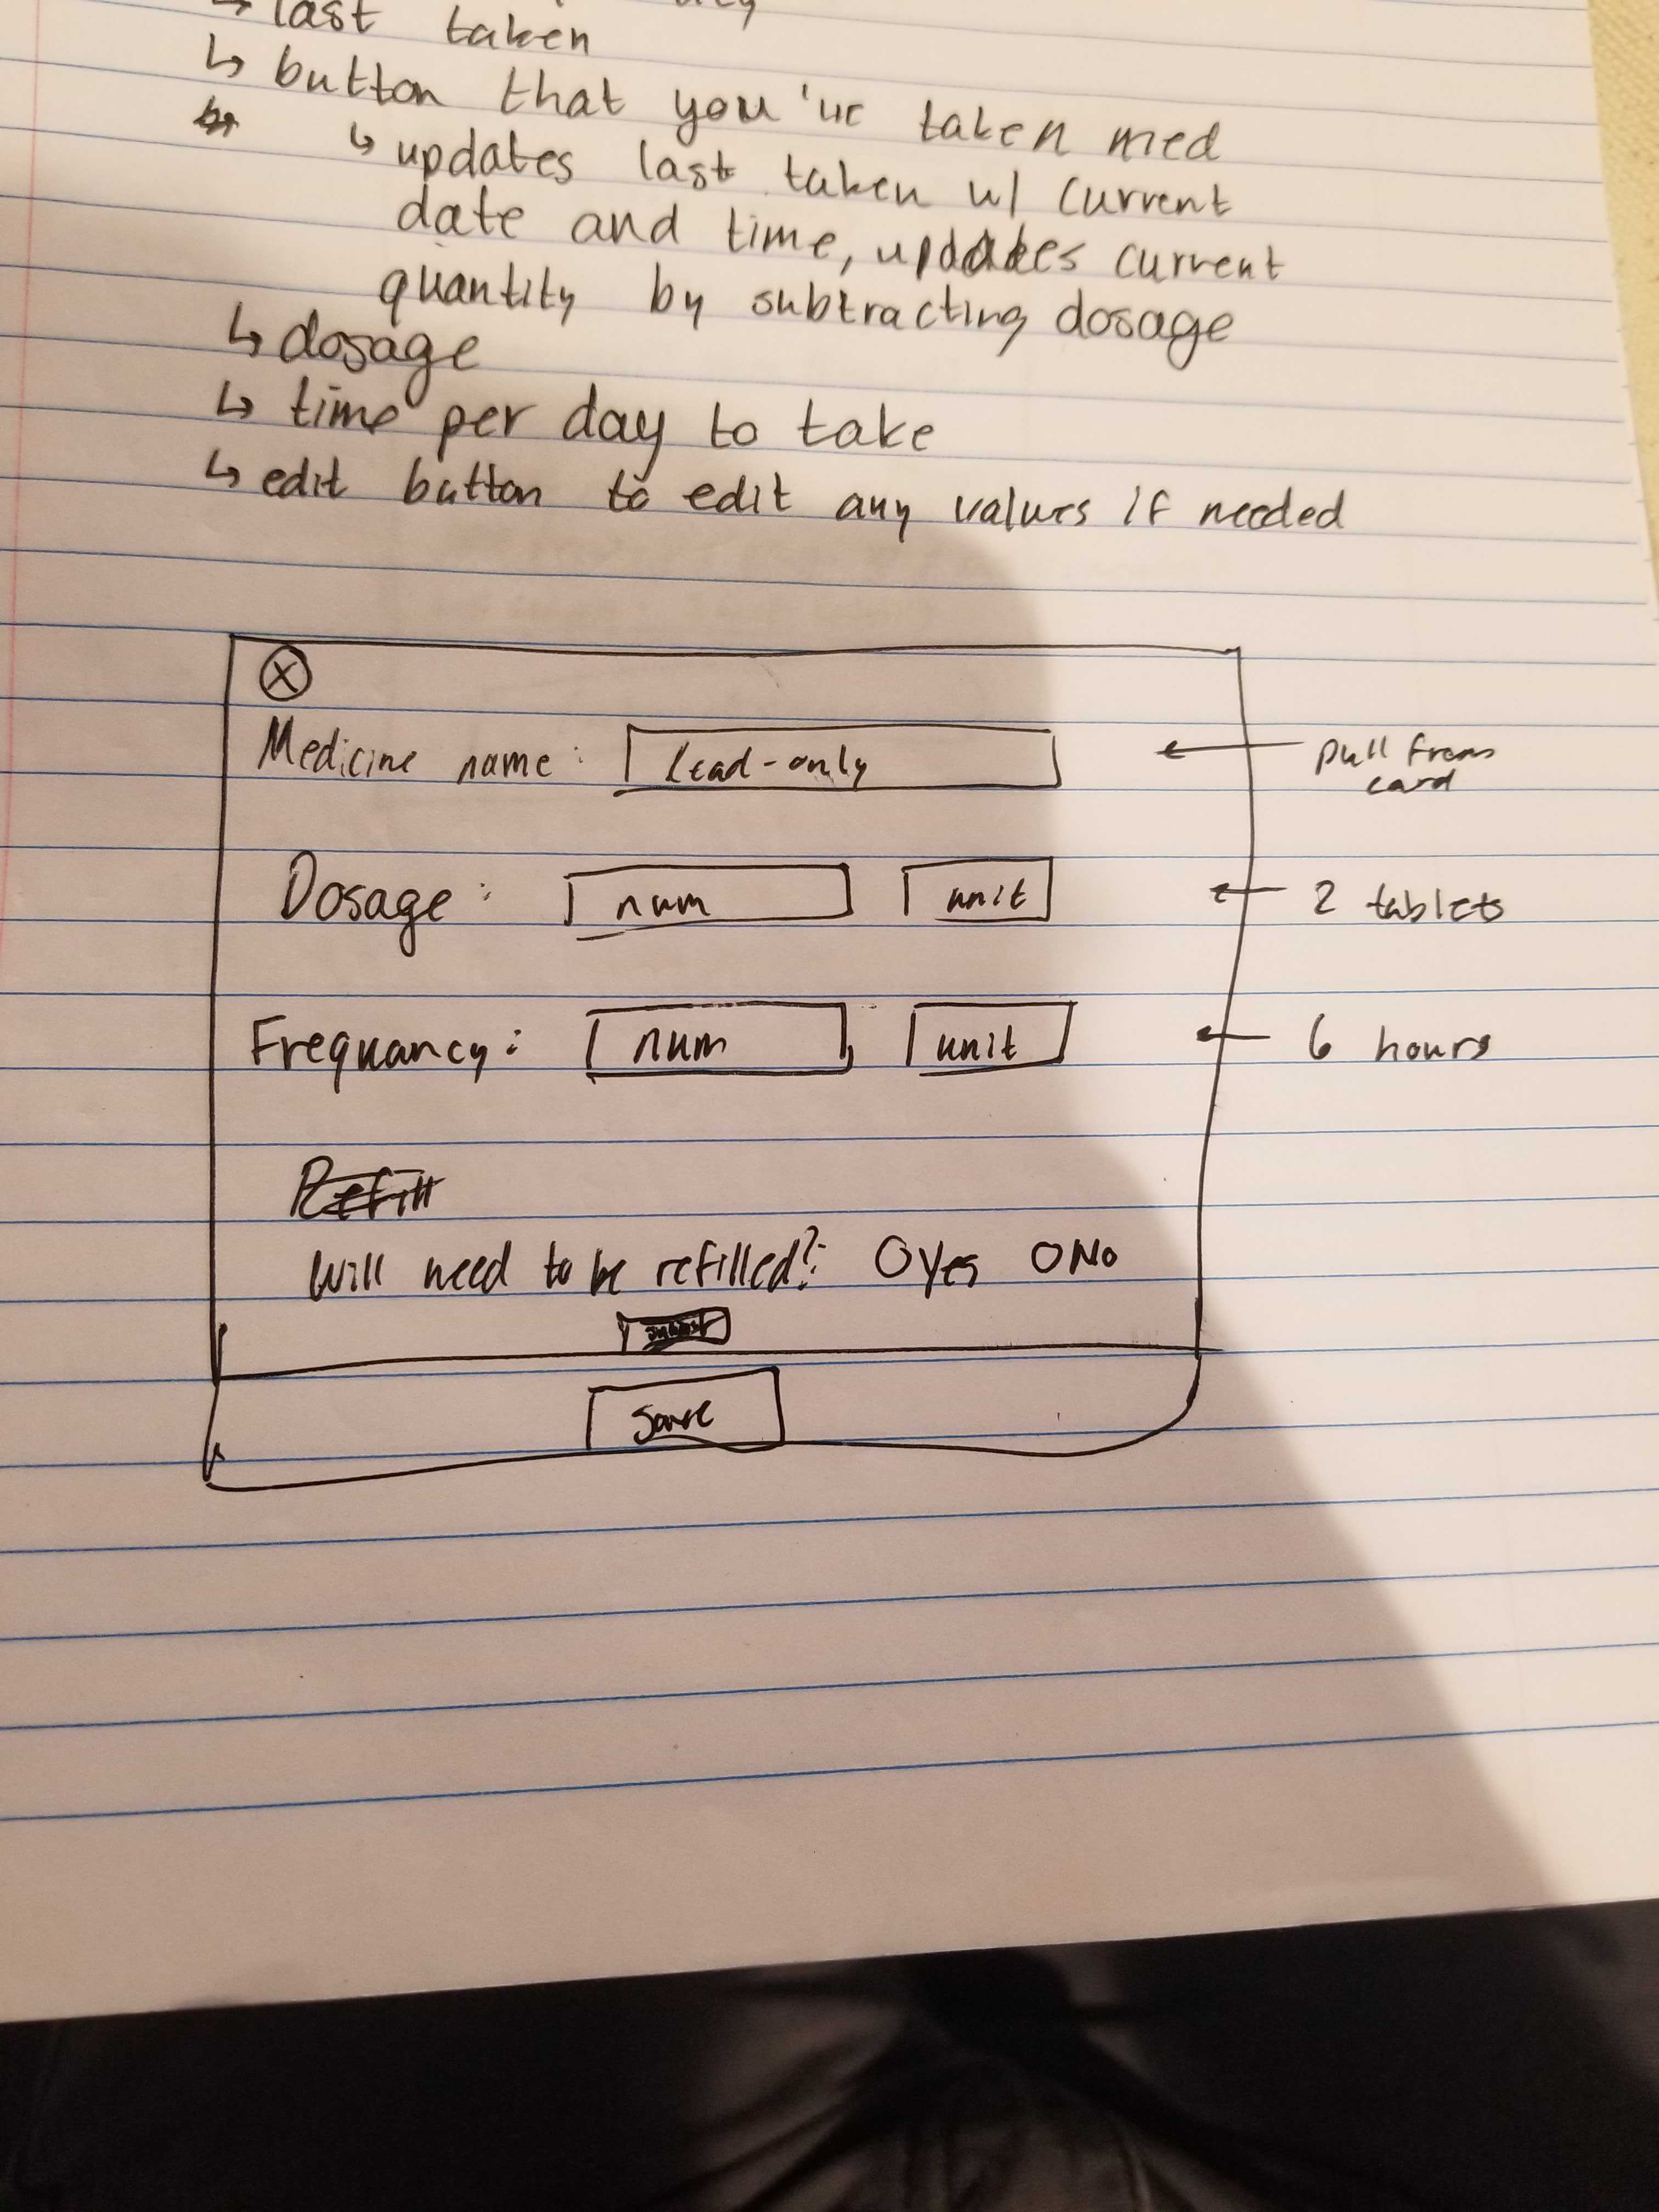 ↳ last taken
↳ button that you've taken med
↳ updates last taken w/ current
date and time, updates current
quantity by subtracting dosage
↳ dosage
↳ time per day to take
↳ edit button to edit any values if needed
X
Medicine name: read-only ← pull from
card
Dosage: num unit ← 2 tablets
Frequancy: num unit ← 6 hours
Refill
Will need to be refilled?: O Yes O No
Save